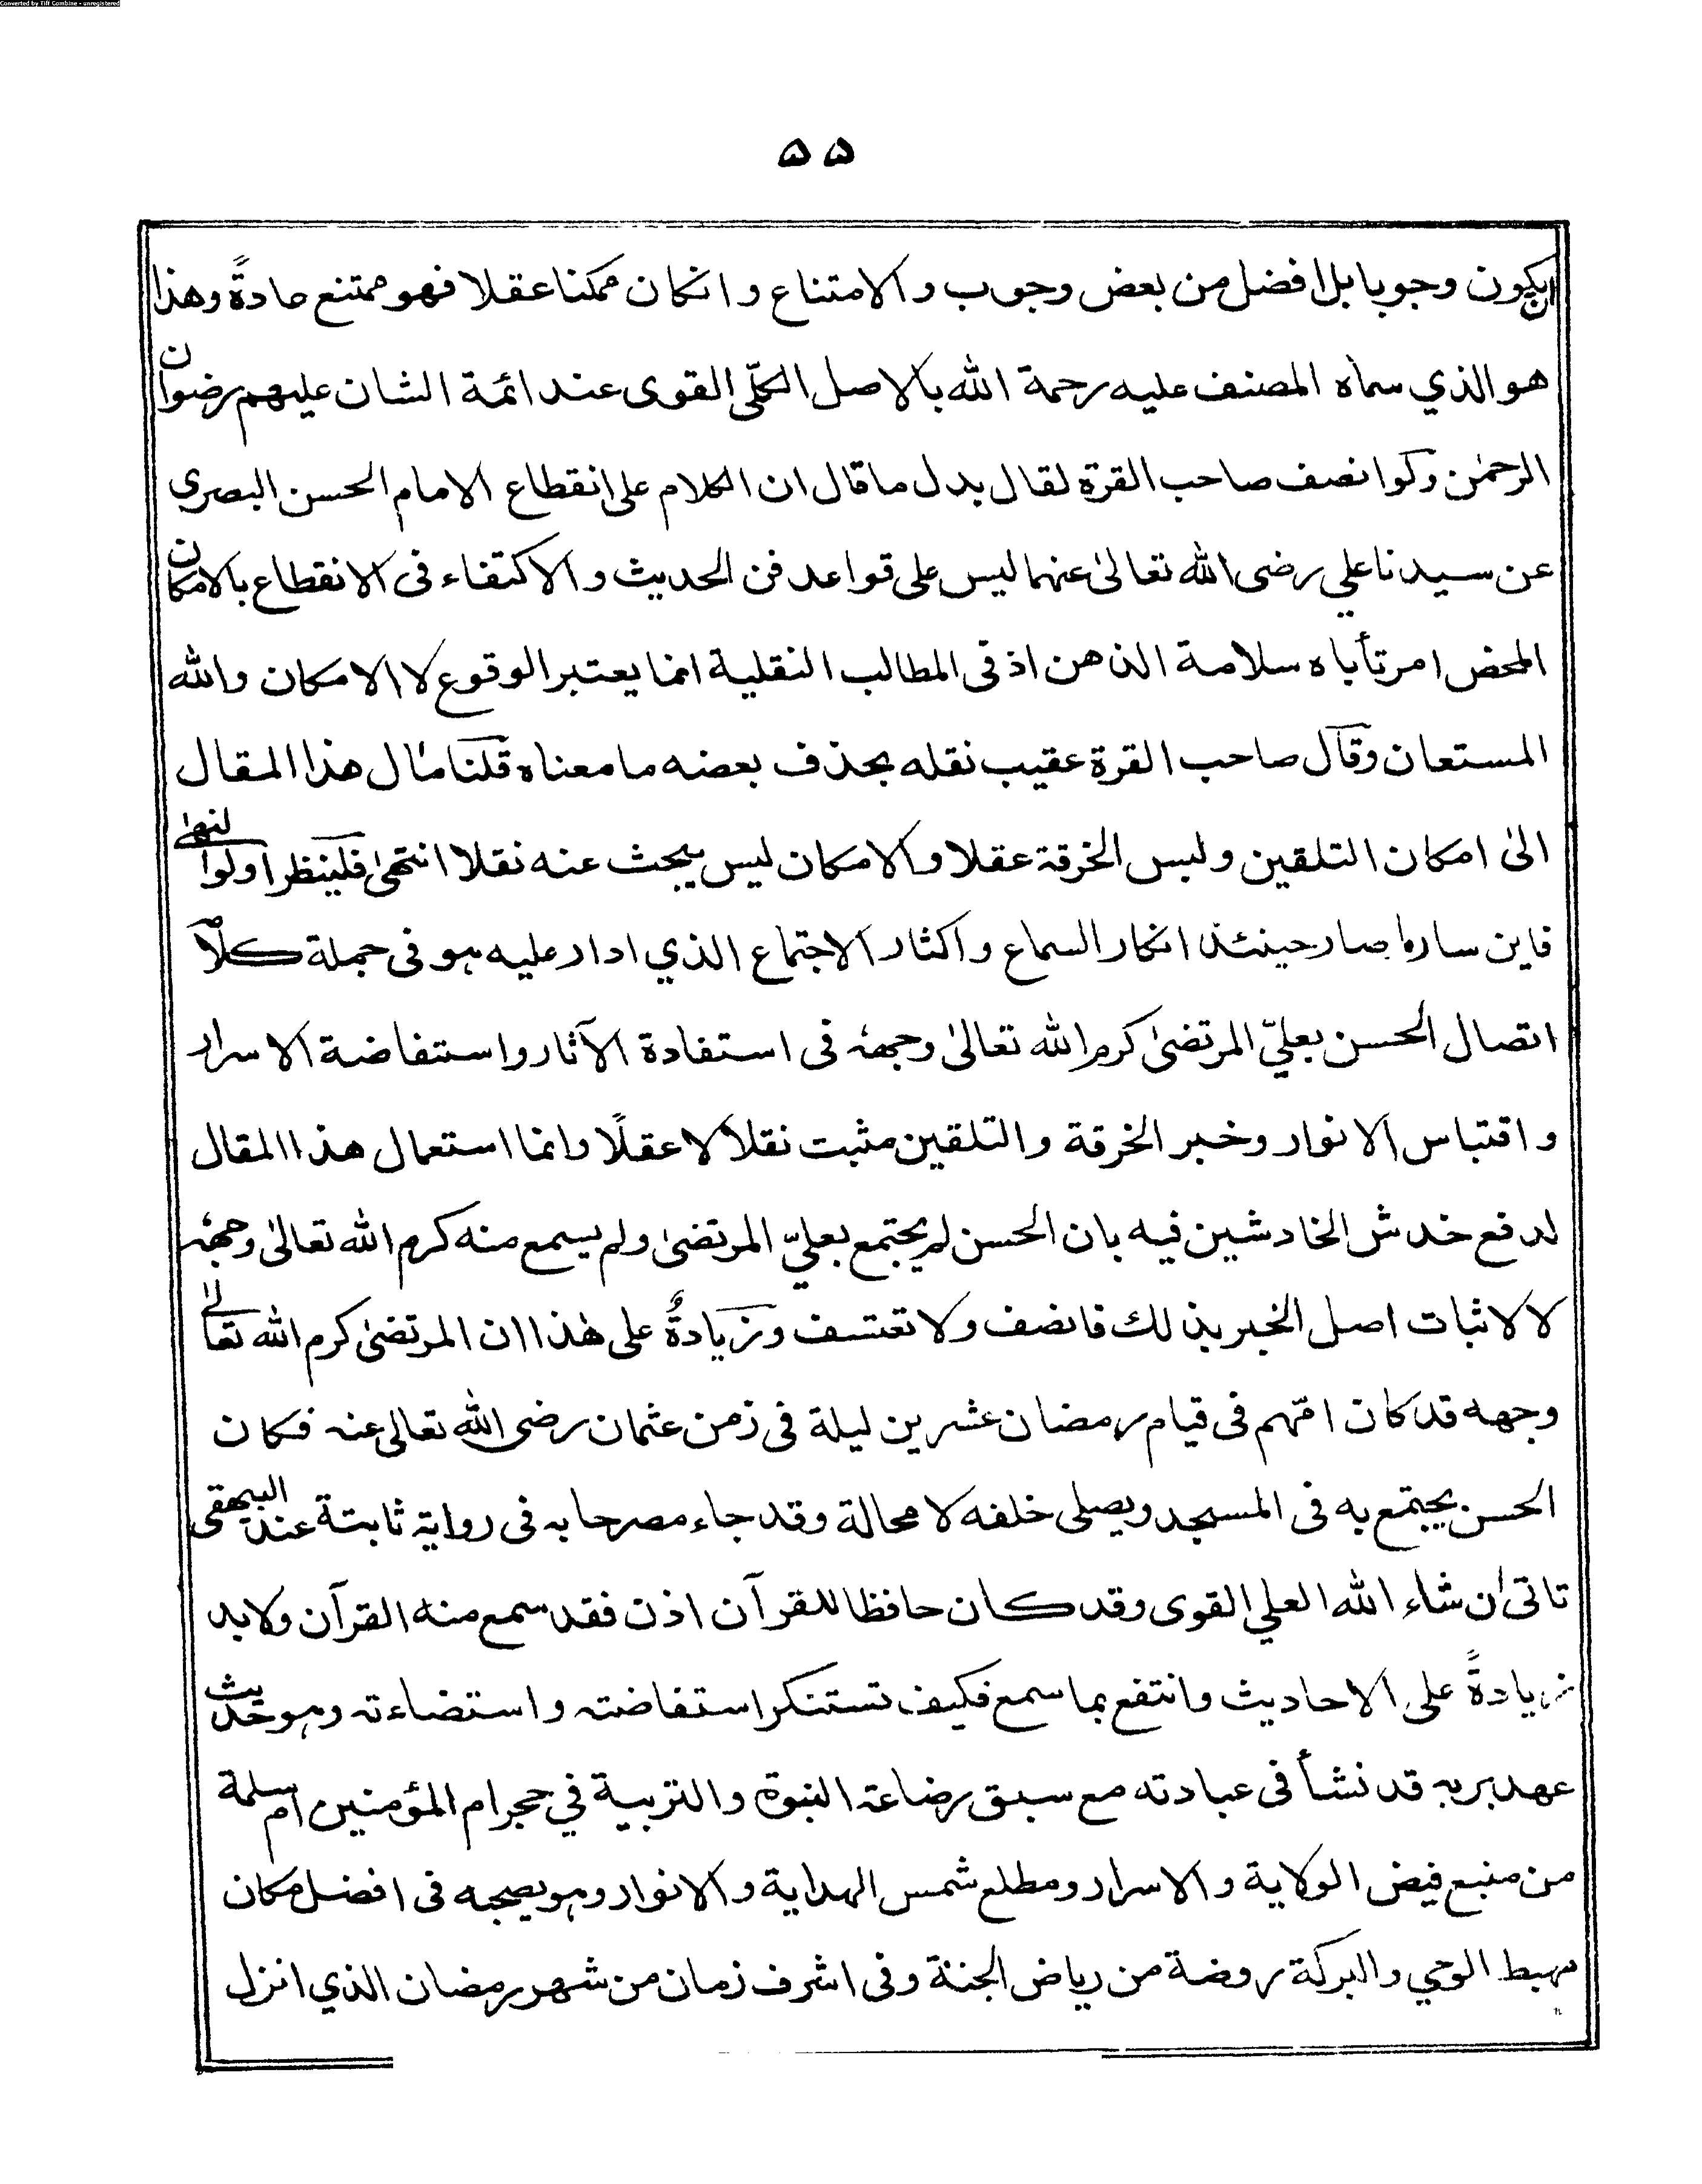 Converted by Tiff Combine - unregistered
۵۵
ان يكون وجوبا بل افضل من بعض وجوب والامتناع وانكان ممكنا عقلا فهو ممتنع عادةً وهذا
هو الذي سماه المصنف عليه رحمة الله بالاصل الكلّى القوى عند ائمة الشان عليهم رضوان
الرحمٰن ولوانصف صاحب القرة لقال بدل ما قال ان الكلام على انقطاع الامام الحسن البصرى
عن سيدنا علي رضى الله تعالىٰ عنهما ليس على قواعد فن الحديث والاكتفاء فى الانقطاع بالامكان
المحض امر تأباه سلامة الذهن اذ فى المطالب النقلية انما يعتبر الوقوع لا الامكان والله
المستعان وقال صاحب القرة عقيب نقله بحذف بعضه ما معناه قلنا مآل هذا المقال
الىٰ امكان التلقين ولبس الخرقة عقلا والامكان ليس يبحث عنه نقلا انتهىٰ فلينظر اولوا النهىٰ
فاين ساره صار حينئذ انكار السماع واكثار الاجتماع الذي ادار عليه هو فى جملة كلامه
اتصال الحسن بعليّ المرتضىٰ كرم الله تعالىٰ وجهه فى استفادة الآثار واستفاضة الاسرار
واقتباس الانوار وخبر الخرقة والتلقين مثبت نقلا لا عقلًا وانما استعمال هذا المقال
لدفع خدش الخادشين فيه بان الحسن لم يجتمع بعليّ المرتضىٰ ولم يسمع منه كرم الله تعالىٰ وجهه
لا لاثبات اصل الخبر بذلك فانصف ولا تعتسف وزيادةٌ على هٰذا ان المرتضىٰ كرم الله تعالىٰ
وجهه قد كان امّهم فى قيام رمضان عشرين ليلة فى زمن عثمان رضى الله تعالى عنه فكان
الحسن يجتمع به فى المسجد ويصلى خلفه لا محالة وقد جاء مصرحا به فى رواية ثابتة عند البيهقى
تاتى ان شاء الله العلي القوى وقد كان حافظا للقرآن اذن فقد سمع منه القرآن ولا بد
زيادةً على الاحاديث وانتفع بما سمع فكيف تستنكر استفاضته واستضاءته وهو حديث
عهد بربه قد نشأ فى عبادته مع سبق رضاعة النبوة والتربية في حجر ام المؤمنين ام سلمة
من منبع فيض الولاية والاسرار ومطلع شمس الهداية والانوار وهو يصحبه فى افضل مكان
مهبط الوحي والبركة روضة من رياض الجنة وفى اشرف زمان من شهر رمضان الذي انزل